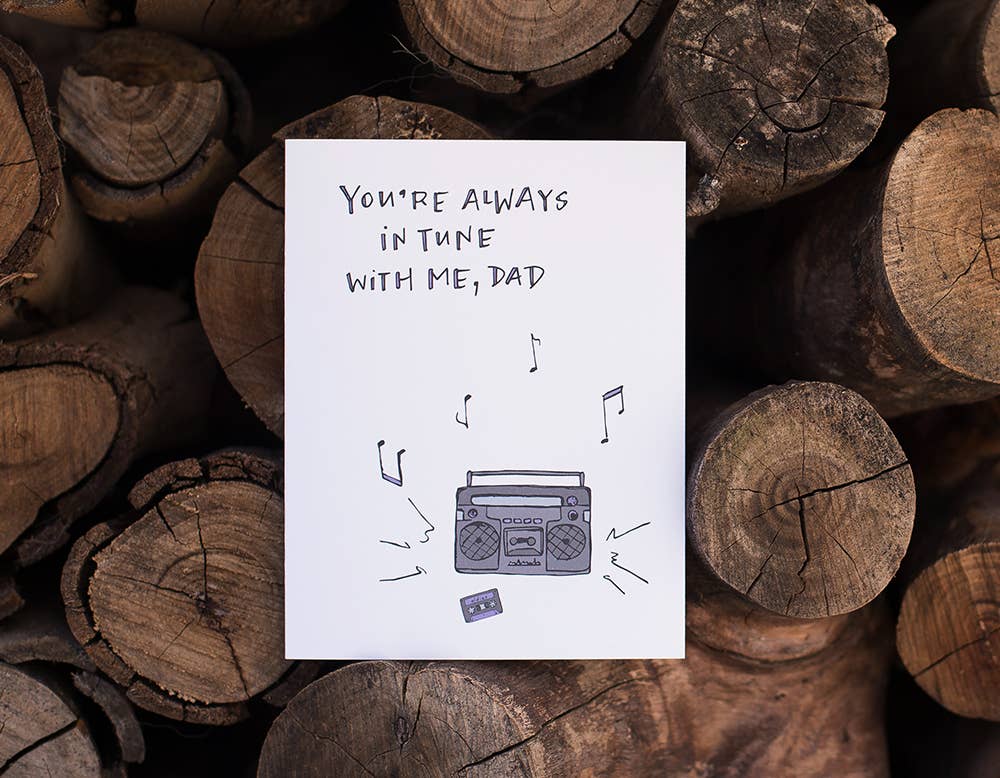 YOU'RE ALWAYS
iN TUNE
WiTH ME, DAD